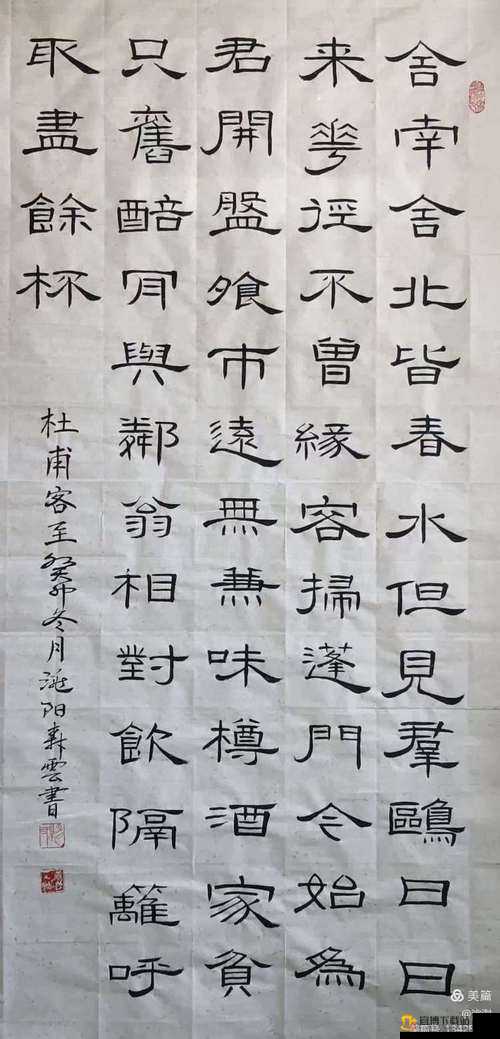 舍南舍北皆春水但見羣鷗日日
来華徑不曾緣客掃蓬門今始為
君開盤飧市遠無兼味樽酒家貧
只舊醅肎與鄰翁相對飲隔籬呼
取盡餘杯
杜甫客至癸卯冬月洮阳森雲書
美篇
官博下载站